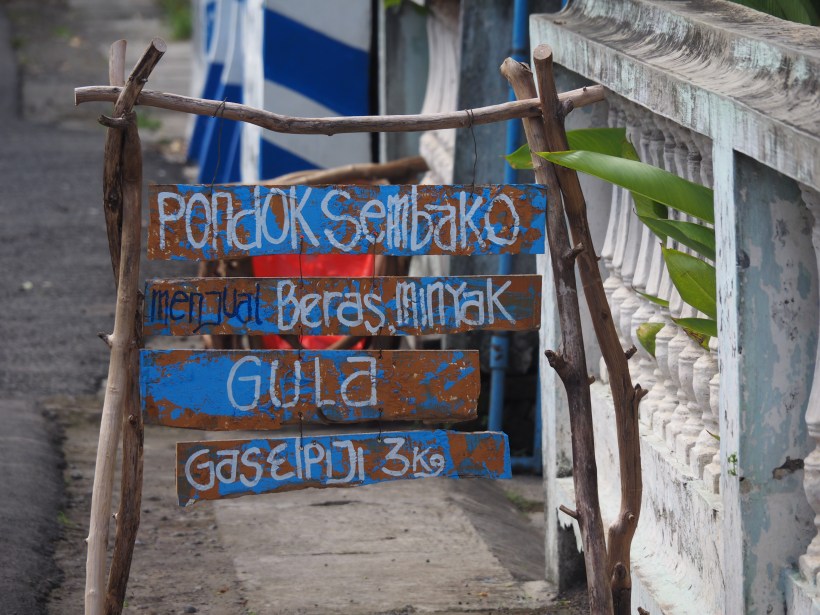 Pondok Sembako
menjual Beras, Minyak
GULa
Gas ElPiJi 3Kg